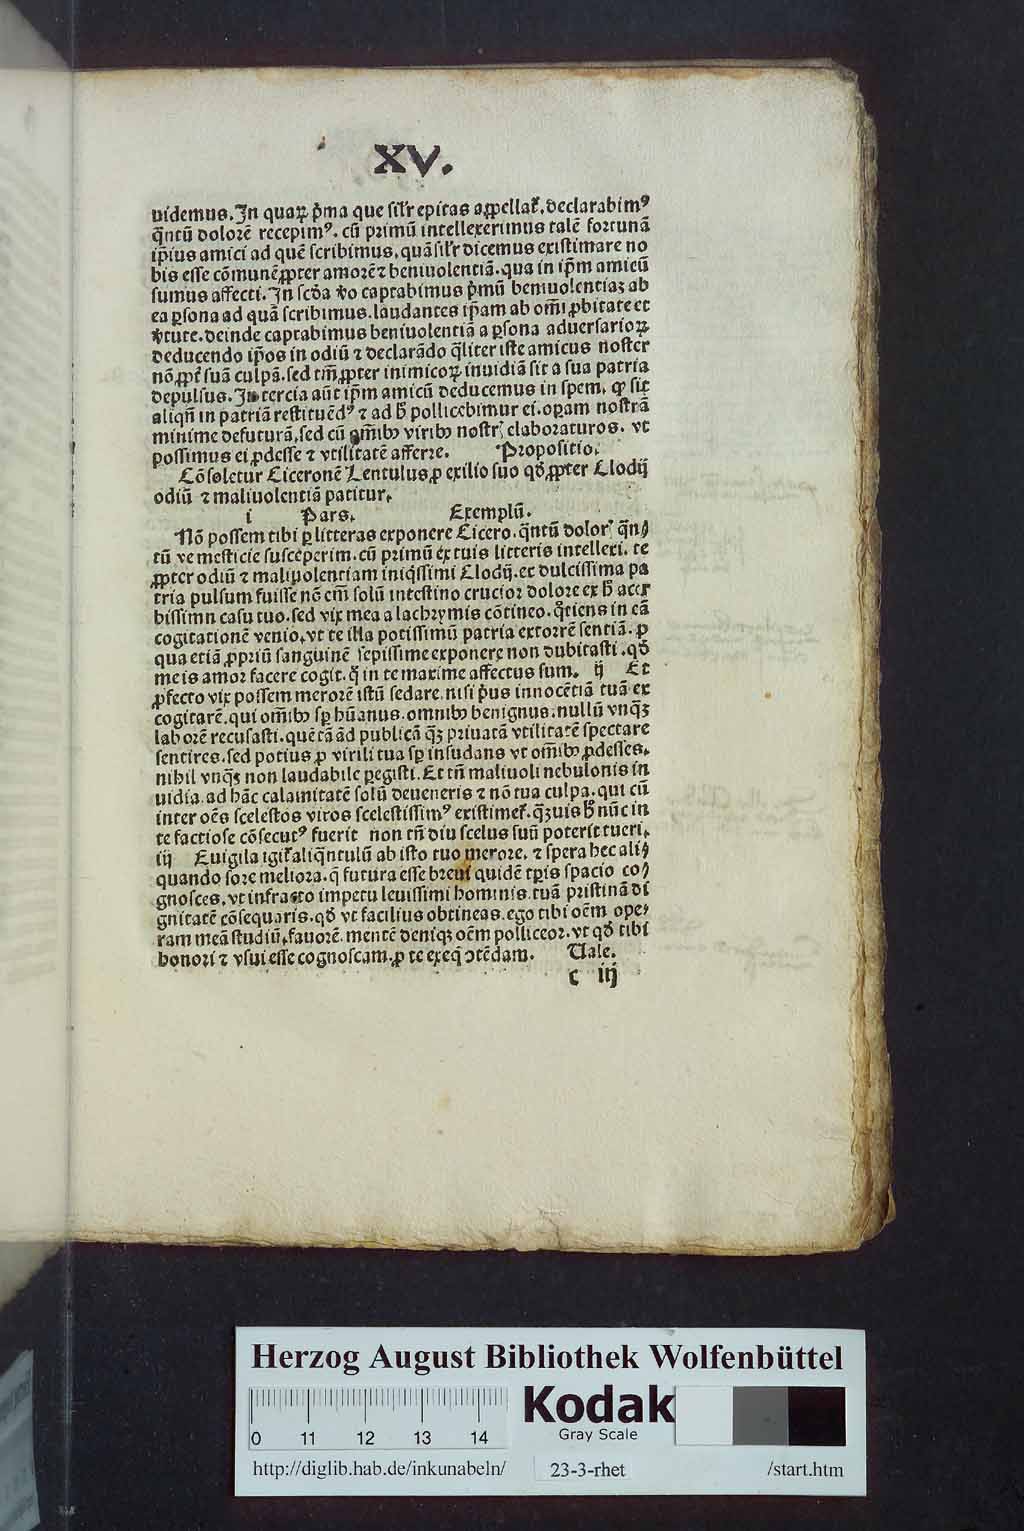 XV.
uidemus. Jn quaꝝ p̓ma que sil̓r epitas aꝓpellat̓. declarabimꝰ
q̃ntũ dolorẽ recepimꝰ. cũ primũ intellexerimus talẽ fortunã
ip̃ius amici ad quẽ scribimus, quã sil̓r dicemus existimare no
bis esse cõmunẽ ꝓpter amorẽ ⁊ beniuolentiã. qua in ip̃m amicũ
sumus affecti. Jn scd̓a v̓o captabimus p̓mũ beniuolentiaꝫ ab
ea ꝑsona ad quã scribimus. laudantes ip̃am ab om̃i ꝓbitate et
v̓tute. deinde captabimus beniuolentiã a ꝑsona aduersarioꝝ
deducendo ip̃os in odiũ ⁊ declarãdo q̃liter iste amicus noster
nõ ꝓpt̓ suã culpã. sed tm̃ ꝓpter inimicoꝝ inuidiã sit a sua patria
depulsus. Jn tercia aũt ip̃m amicũ deducemus in spem. ꝙ sit
aliqñ in patriã restituẽdꝰ ⁊ ad h̓ pollicebimur ei. oꝑam nostrã
minime defuturã, sed cũ om̃ibꝰ viribꝰ nostr̓ elaboraturos. vt
possimus ei ꝓdesse ⁊ vtilitatẽ afferre. Propositio.
Cõsoletur Ciceronẽ Lentulus ꝓ exilio suo qd̓ ꝓpter Clodij
odiũ ⁊ maliuolentiã patitur.
i Pars. Exemplũ.
Nõ possem tibi ꝑ litteras exponere Cicero. q̃ntũ dolor̓ q̃n
tũ ve mesticie susceperim. cũ primũ ex tuis litteris intellexi. te
ꝓpter odiũ ⁊ maliuolentiam iniq̃ssimi Clodij. et dulcissima pa
tria pulsum fuisse nõ em̃ solũ intestino crucior dolore ex h̓ acer
bissimn casu tuo. sed vix mea a lachrymis cõtineo. q̃tiens in eã
cogitationẽ venio, vt te illa potissimũ patria extorrẽ sentiã. ꝓ
qua etiã ꝓpriũ sanguinẽ sepissime exponere non dubitasti. qd̓
me is amor facere cogit. q̃ in te maxime affectus sum. ij Et
ꝓfecto vix possem merorẽ istũ sedare. nisi p̓us innocẽtiã tuã ex
cogitarẽ. qui om̃ibꝰ sꝑ hũanus. omnibꝰ benignus. nullũ vnq̃ꝫ
laborẽ recusasti. quẽ tã ad publicã q̃ꝫ priuatã vtilitatẽ spectare
sentires. sed potius ꝓ virili tua sꝑ insudans vt om̃ibꝰ ꝓdesses.
nihil vnq̃ꝫ non laudabile ꝑegisti. Et tñ maliuoli nebulonis in
uidia. ad hãc calamitatẽ solũ deueneris ⁊ nõ tua culpa. qui cũ
inter oẽs scelestos viros scelestissimꝰ existimet̓. q̃ꝫuis h̓ nũc in
te factiose cõsecutꝰ fuerit non tñ diu scelus suũ poterit tueri.
iij Euigila igit̓ aliq̃ntulũ ab isto tuo merore. ⁊ spera hec ali
quando fore meliora. q̃ futura esse breui quidẽ tꝑis spacio co
gnosces, vt infracto impetu leuissimi hominis. tuã pristinã di
gnitatẽ cõsequaris. qd̓ vt facilius obtineas. ego tibi oẽm ope
ram meã studiũ, fauorẽ. mentẽ deniqꝫ oẽm polliceor. vt qd̓ tibi
honori ⁊ vsui esse cognoscam. ꝓ te exeq̃ ꝯtẽdam. Uale.
c iij
Herzog August Bibliothek Wolfenbüttel
0 11 12 13 14
Kodak
Gray Scale
http://diglib.hab.de/inkunabeln/ 23-3-rhet /start.htm